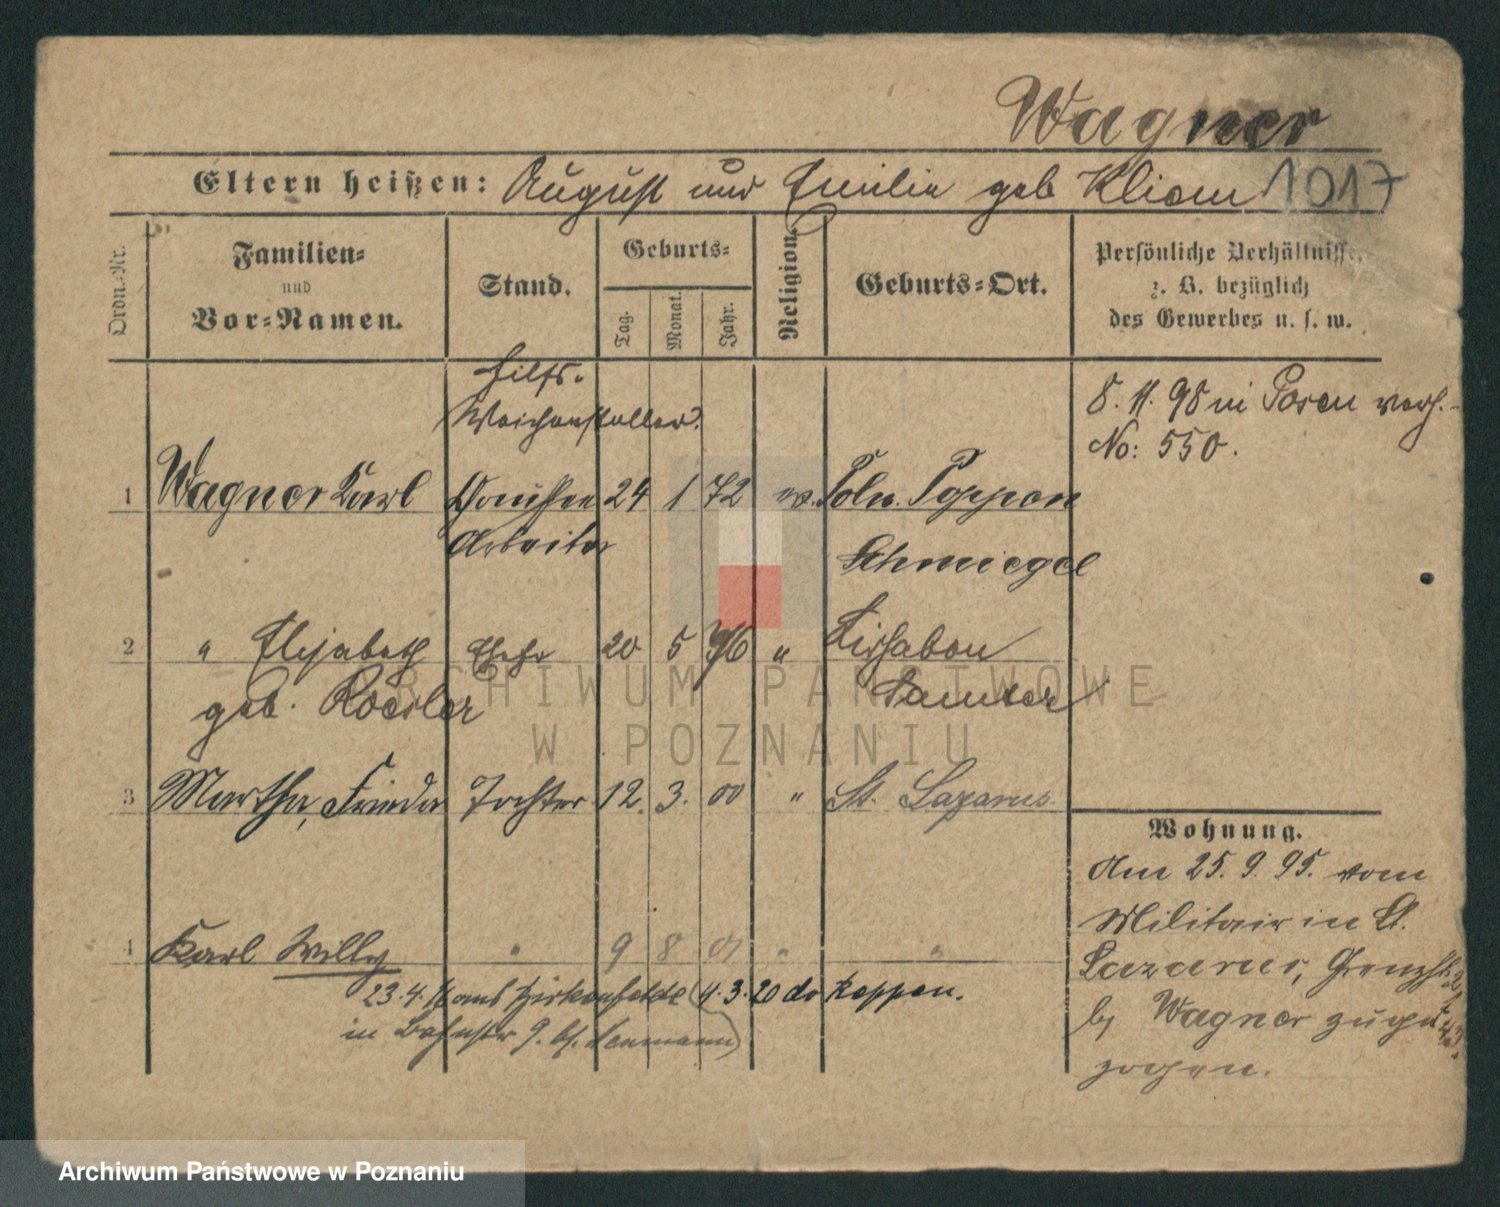 Wagner
Eltern heißen: August und Emilie geb Kliem 1017
Ordn.-Nr.
Familien-
und
Vor-Namen.
Stand.
Geburts-
Tag.
Monat.
Jahr.
Religion.
Geburts-Ort.
Persönliche Verhältnisse,
z. B. bezüglich
des Gewerbes u. s. w.
Hilfs.
Weichensteller.
1 Wagner Karl 24 1 72 ev. Poln. Poppen
Arbeiter Schmiegel
8. 11. 98 in Posen verh.
No: 550.
2 " Elisabeth Ehefr 20 5 76 "
geb. Roesler Samter
3 Martha, Frieda Tochter 12. 3. 00 " St. Lazarus
4 Karl Willy " 9 8 01 " "
23. 4. aus Birkenfelde (4. 3. 20 do Koppen.
in Neumann)
Wohnung.
Am 25. 9. 95. vom
Militair in St.
Lazarus,
by Wagner zuge
zogen.
ARCHIWUM PAŃSTWOWE
W POZNANIU
Archiwum Państwowe w Poznaniu